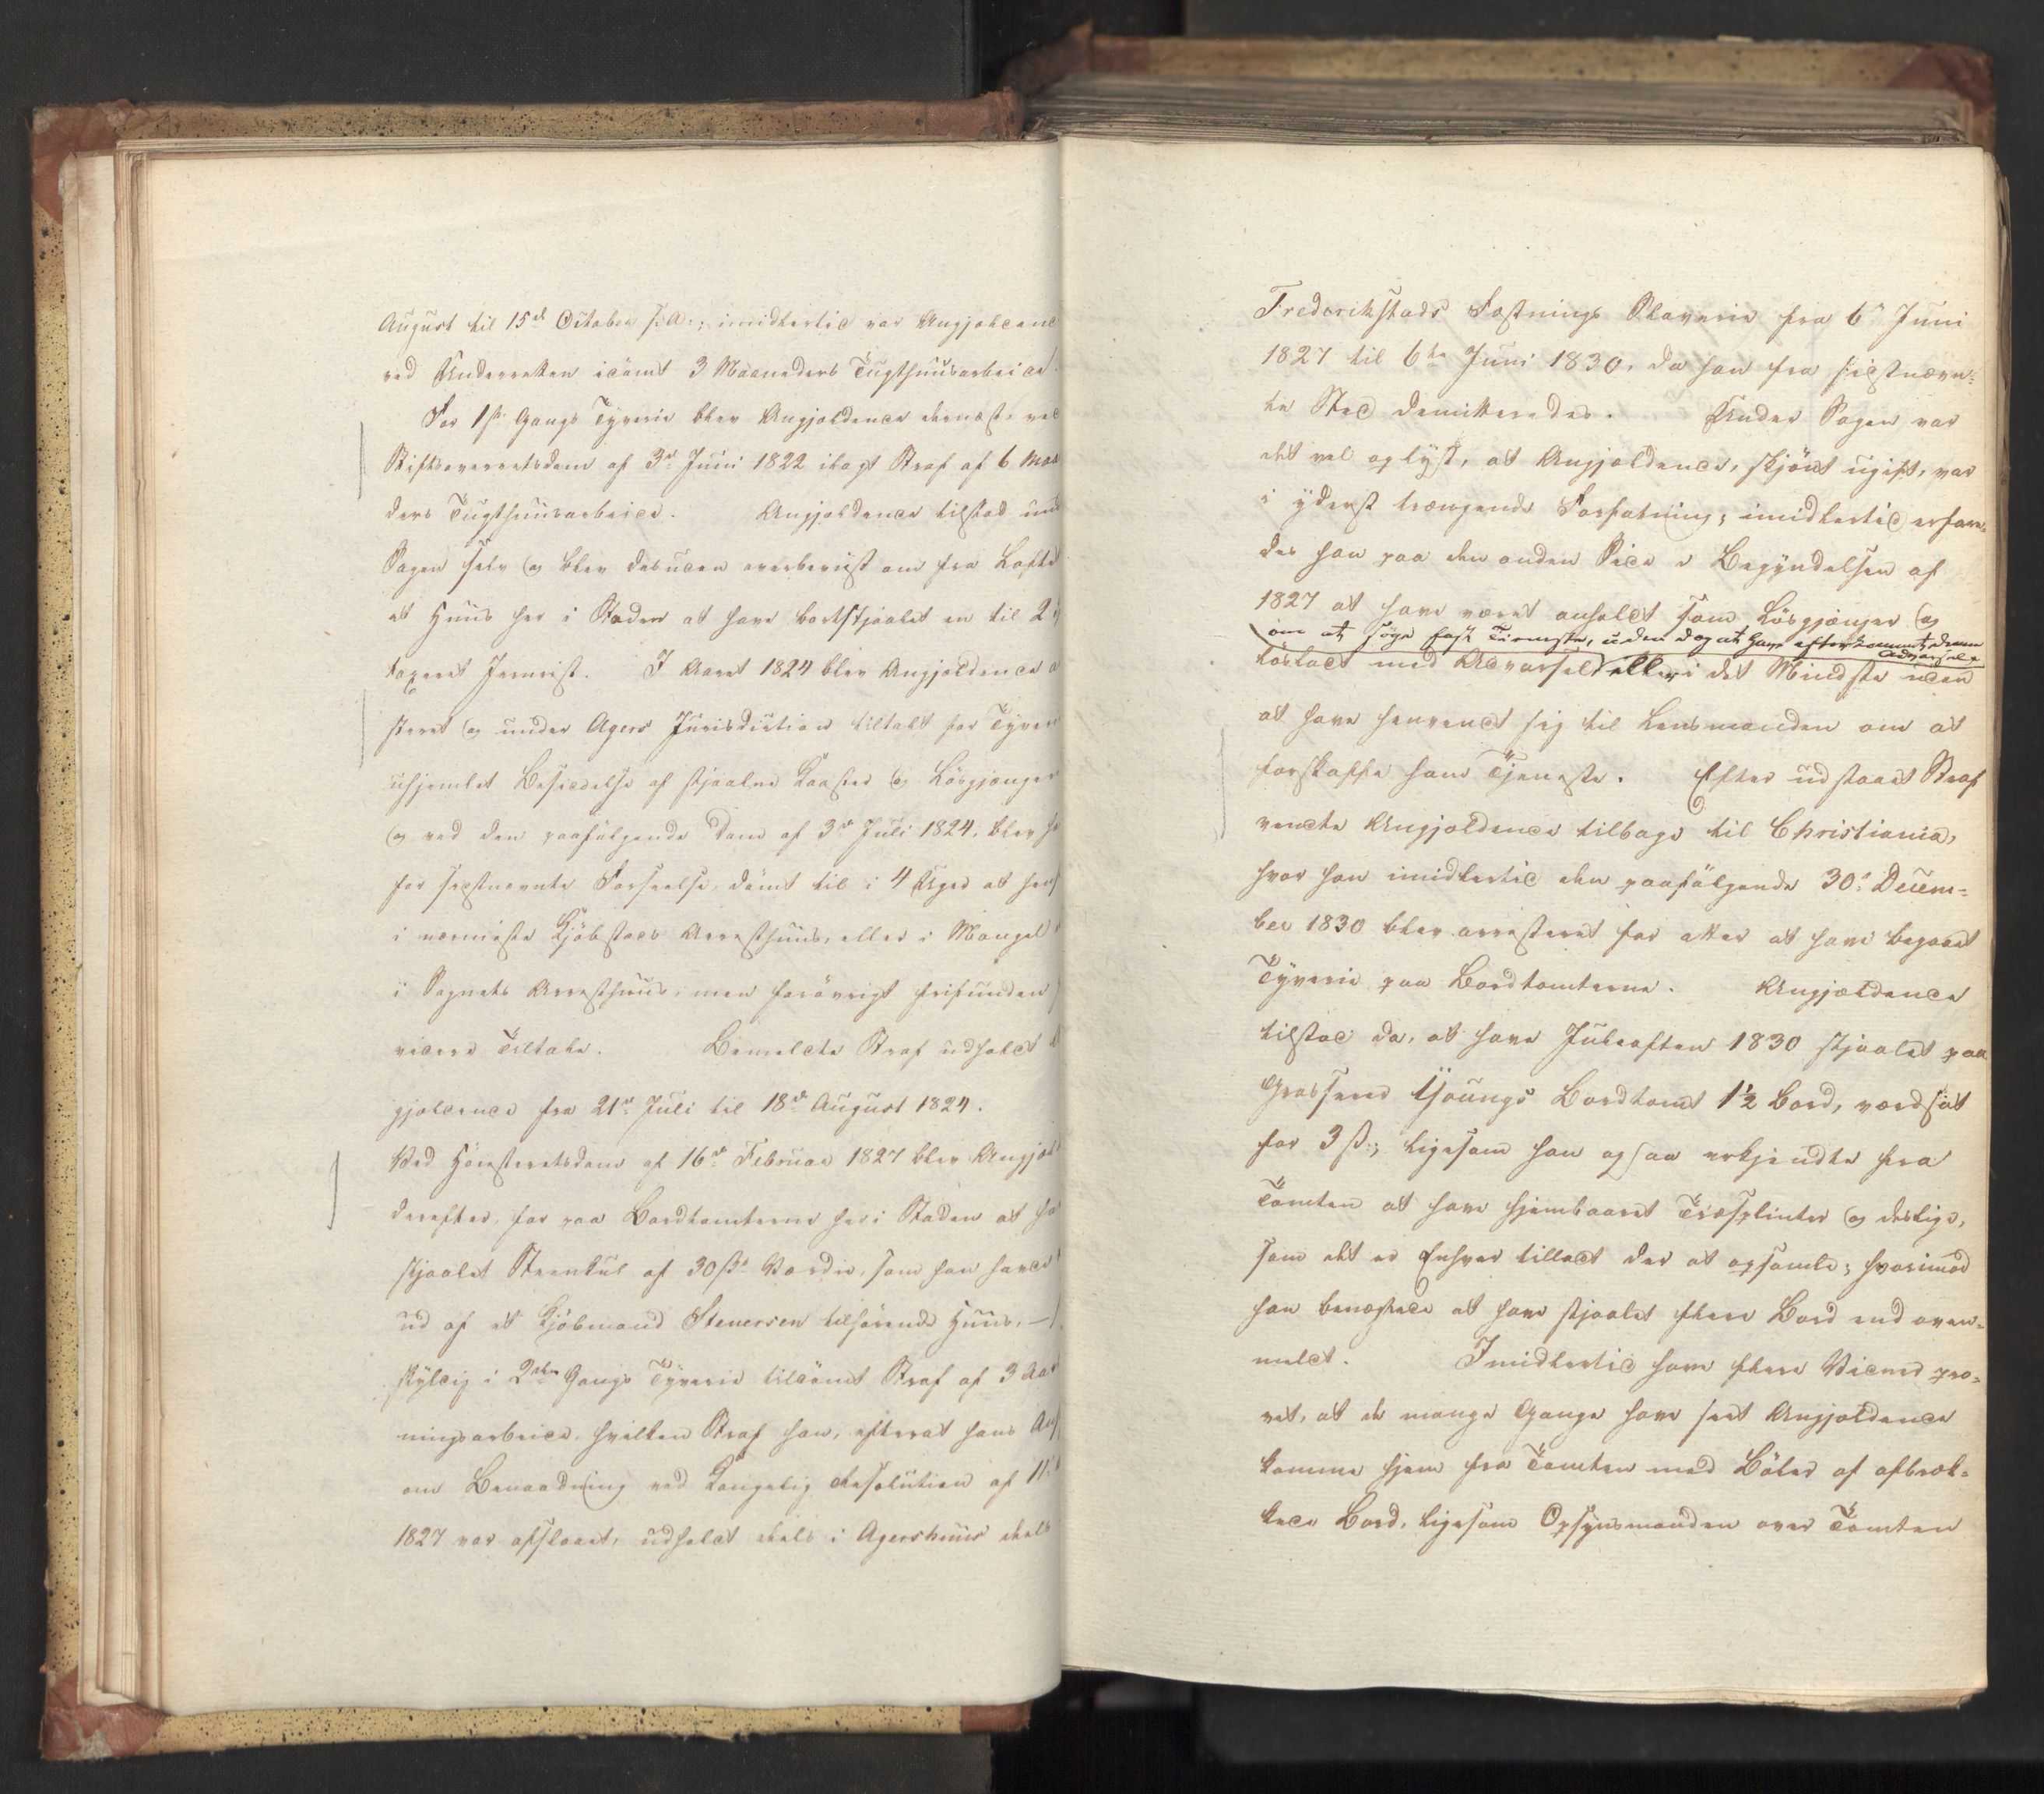 August til 15de October s: A:; imidlertid var Angjældend
ved Underretten idømt 3 Maaneders Tugthuusarbeide.
For 1ste Gangs Tyverie blev Angjældende dernæst, ved
Stiftsoverretsdom af 3die Juni 1822 ilagt Straf af 6 Maa
ders Tugthuusarbeide. Angjældende tilstod und
Sagen selv og blev desuden overbeviist om fra Loftet
et Huus her i Staden at have bortstjaalet en til 2
taxeret Jernrist. I Aaret 1824 blev Angjældende a
steret og under Agers Jurisdiction tiltalt for Tyver
uhjemlet Besiddelse af stjaalne Kaaster og Løsgjænger
og ved den paafølgende Dom af 3die Juli 1824, blev ha
for sidstnævnte Forseelse, dømt til i 4 Uger at hens
i nærmeste Kjøbstæds Arresthuus, eller i Mangel
i Sognets Arresthuus; men forøvrigt frifunden
videre Tiltale. Bemeldte Straf udholdt
gjældende fra 21de Juli til 18de August 1824.
Ved Høiesteretsdom af 16de Februar 1827 blev Angjæl
derefter, for paa Bordtomterne her i Staden at ha
stjaalet Steenkul af 30 ß Værdie, som han havde
ud af et Kjøbmand Stenersen tilhørende Huus, —
skyldig i 2den Gangs Tyverie tildømt Straf af 3 Aar
ningsarbeide, hvilken Straf han, efterat hans Ans
om Benaadning ved Kongelig Resolution af 11
1827 var afslaaet, udholdt deels i Agershuus deels
Frederikstads Fæstnings Slaverie fra 6te Juni
1827 til 6te Juni 1830, da han fra sidstnævn-
te Sted demitteredes. Under Sagen var
det vel oplyst, at Angjældende, skjønt ugift, var
i yderst trængende Forfatning; imidlertid erfare-
des han paa den anden Side i Begyndelsen af
1827 at have været anholdt som Løsgjænger og
om at søge fast Tieneste, uden dog at have efterkommet denne Advarsel
løsladt med Advarsel eller i det Mindste uden
at have henvendt sig til Lensmanden om at
forskaffe ham Tjeneste. Efter udstaaet Straf
vendte Angjældende tilbage til Christiania,
hvor han imidlertid den paafølgende 30te Decem-
ber 1830 blev arresteret for atter at have begaaet
Tyverie paa Bordtomterne. Angjældende
tilstod da, at have Juleaften 1830 stjaalet paa
Grosserer Youngs Bordtomt 1½ Bord, værdsat
for 3 ß; ligesom han ogsaa erkjendte fra
Tomten at have hjembaaret Træsplinter og deslige,
som det er Enhver tilladt der at opsamle; hvorimod
han benægtede at have stjaalet flere Bord end oven-
meldt. Imidlertid have flere Vidner pro-
vet, at de mange Gange have seet Angjældende
komme hjem fra Tomten med Bøler af afbræk-
kede Bord, ligesom Opsynsmanden over Tomten